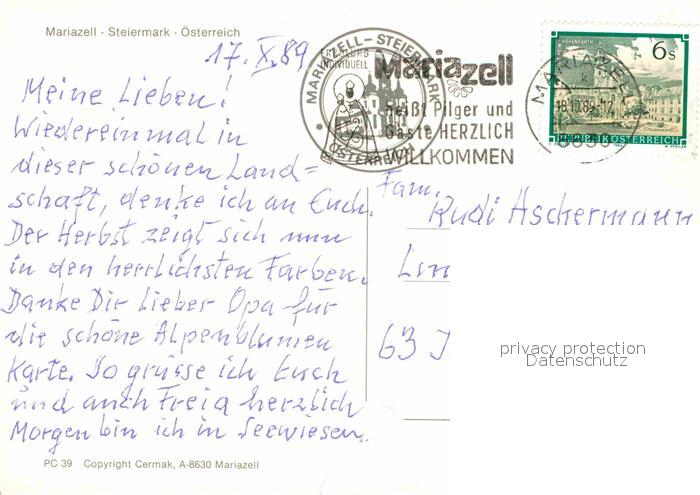 Mariazell - Steiermark - Österreich
17. X. 89
Meine Lieben!
Wiedereinmal in
dieser schönen Land=
schaft, denke ich an Euch.
Der Herbst zeigt sich nun
in den herrlichsten Farben.
Danke Dir lieber Opa für
die schöne Alpenblumen
Karte. So grüsse ich Euch
und auch Freia herzlich
Morgen bin ich in Seewiesen.
PC 39 Copyright Cermak, A-8630 Mariazell
MARIAZELL - STEIERMARK
INDIVIDUELL
ÖSTERREICH
Mariazell
heißt Pilger und
Gäste HERZLICH
WILLKOMMEN
6s
MARIAZELL
18.10.89-12
REPUBLIK ÖSTERREICH
Fam.
Rudi Aschermann
Lin
63
privacy protection
Datenschutz